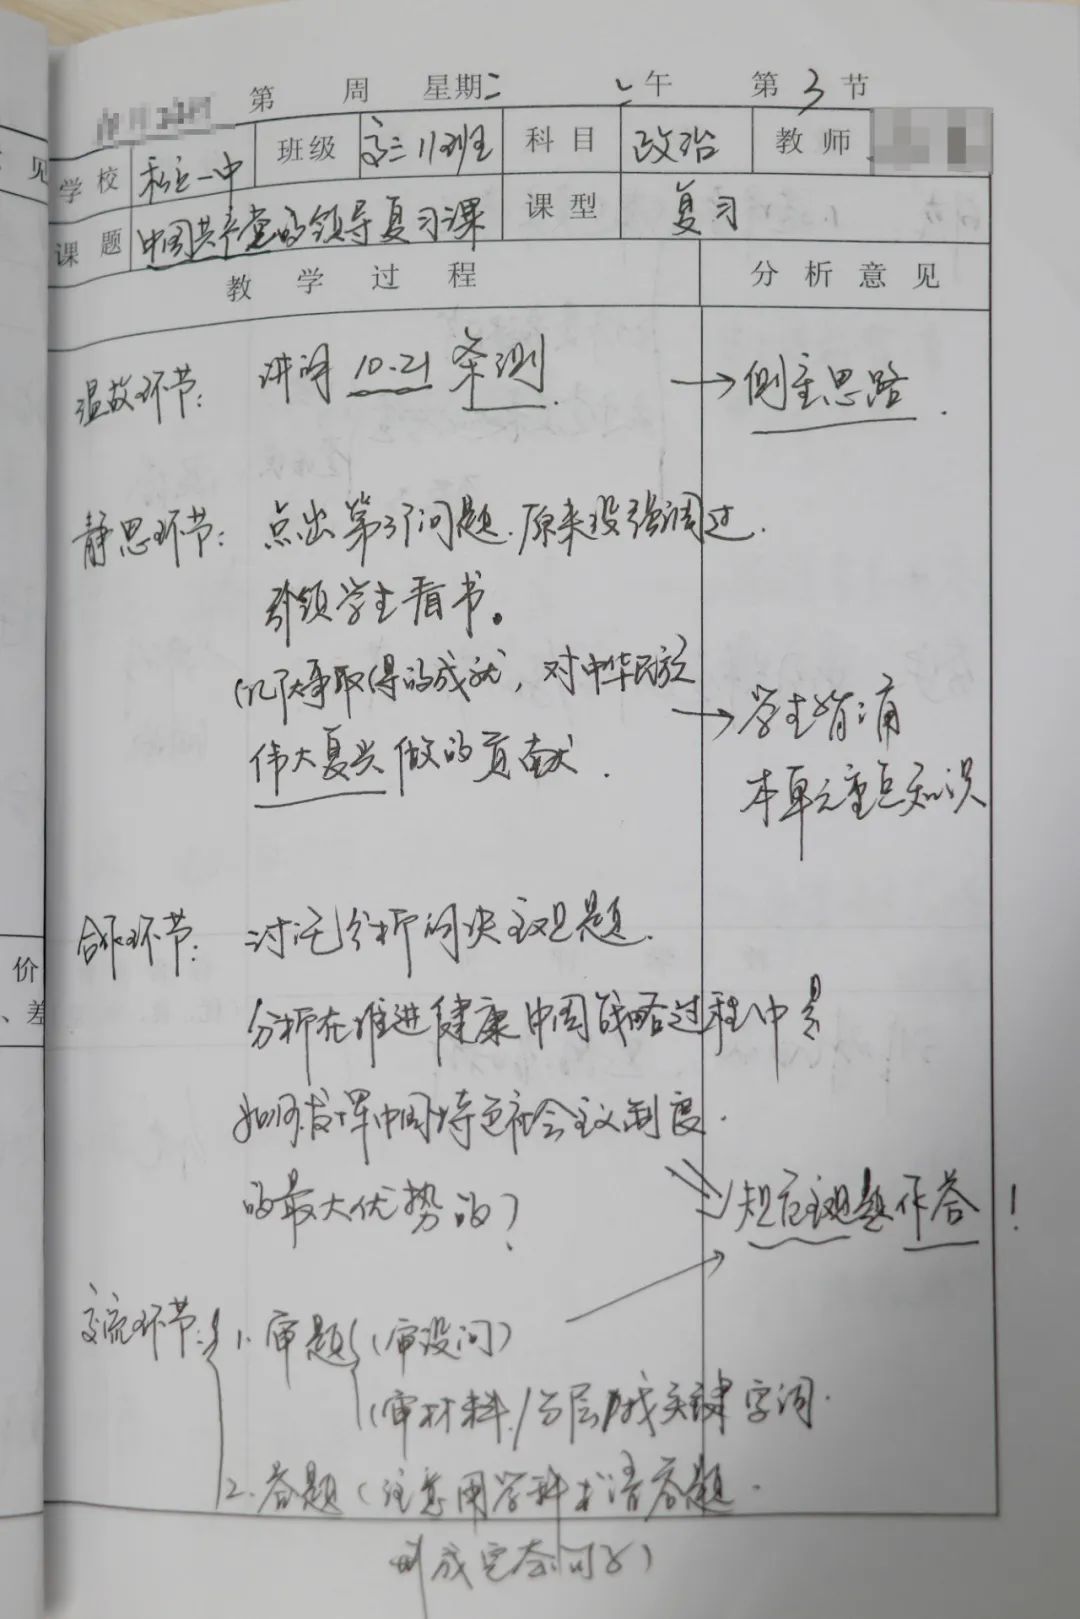 第 周 星期二 午 第3节
学校 私立一中 班级 高三11班 科目 政治 教师
课题 中国共产党的领导复习课 课型 复习
教学过程 分析意见
温故环节: 讲评 10.21 条测 → 侧重思路.
静思环节: 点出第3个问题.原来没强调过.
引领学生看书。
取得的成就,对中华民族 → 学生背诵
伟大复兴做的贡献. 本单元重点知识
合作环节: 讨论分析问决主观题.
分析在推进健康中国战略过程中是
如何发挥中国特色社会主义制度.
的最大优势的? 规范主观题作答!
交流环节: 1.审题(审设问)
(审材料/分层/找关键字词.
2.答题(注意用学科术语答题.
形成完整句子)
见
价
、差